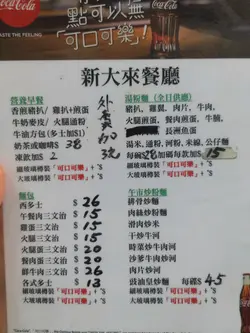 Coca-Cola
TASTE THE FEELING
點可以無
「可口可樂」！
新大來餐廳
營養早餐
香煎豬扒/雞扒+煎蛋
牛奶麥皮/火腿通粉
牛油方包(多士加$1)
奶茶或咖啡$ 38
凍飲加$2
細玻璃樽裝「可口可樂」+$
大玻璃樽裝「可口可樂」+$
外賣加
湯粉麵(全日供應)
豬扒、雞翼、肉片、牛肉、
火腿煎蛋、餐肉煎蛋、牛腩、
長洲魚蛋
湯米、通粉、河粉、米線、公仔麵
每碗$38加餸每款加$ 15
細玻璃樽裝「可口可樂」+$
大玻璃樽裝「可口可樂」+$
麵包
西多士 $ 26
午餐肉三文治 $ 15
雞蛋三文治 $ 15
火腿三文治 $ 15
火腿蛋三文治 $ 20
餐肉蛋三文治 $ 20
鮮牛肉三文治 $ 26
各式多士 $ 13
細玻璃樽裝「可口可樂」+$
大玻璃樽裝「可口可樂」+$
午市炒粉麵
排骨炒麵
肉絲炒粉麵
滑肉炒米
干炒牛河
時菜炒牛肉河
沙爹牛肉炒河
肉片炒河
豉油皇炒麵 每碟$45
細玻璃樽裝「可口可樂」+$
大玻璃樽裝「可口可樂」+$